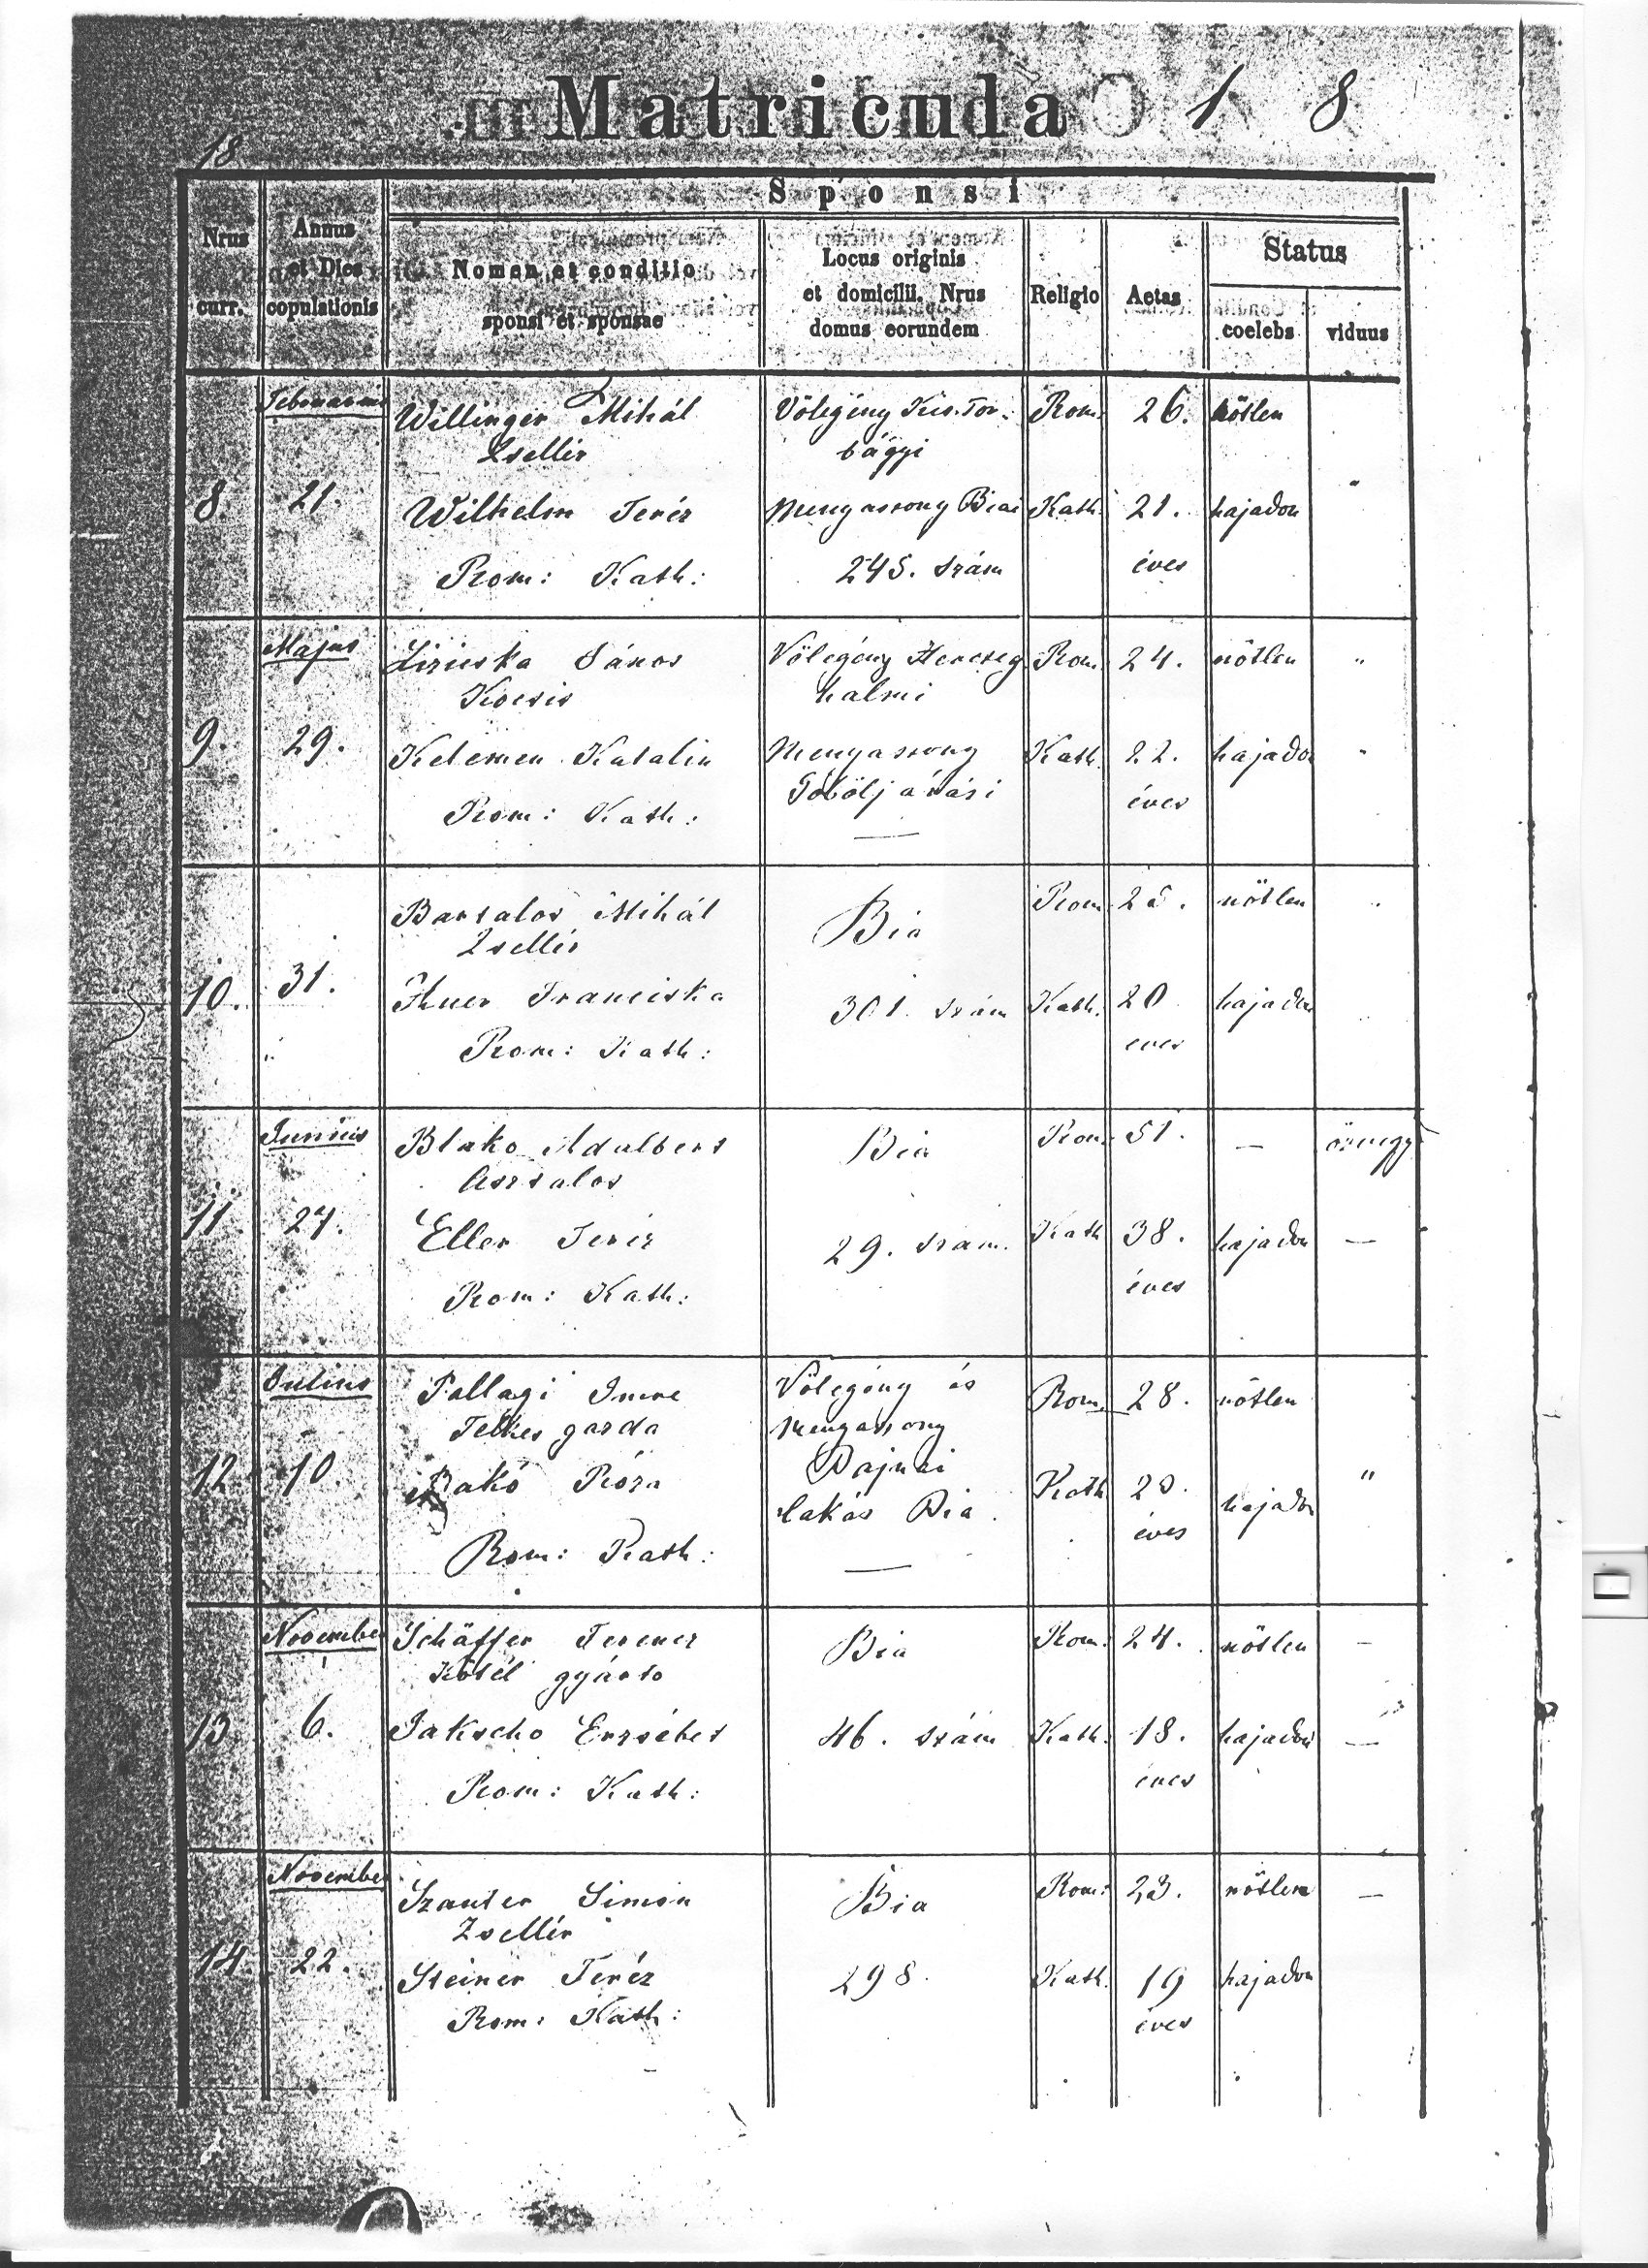 Matricula 1 8
18
Sponsi
Nrus curr.
Annus et Dies copulationis
Nomen et conditio sponsi et sponsae
Locus originis et domicilii. Nrus domus eorundem
Religio
Aetas
Status
coelebs
viduus
Februarius Willinger Mihál Völegény Kis.Tor- Rom: 26. nötlen
Zsellér bágyi
8. 21. Wilhelm Teréz Menyassony Biai Kath. 21. hajadon "
Rom: Kath: 245. szám éves
Május János Völegény Herczeg Rom. 24. nötlen "
Kocsis halmi
9. 29. Kelemen Katalin Menyassony Kath. 22. hajadon "
Göböljárási éves
Rom: Kath: —
Bartalos Mihál Bia Rom 25. nötlen "
Zsellér
10. 31. Franciska 301. szám Kath. 20 hajadon
Rom: Kath: éves
Junius Blako Adalbert Bia Rom. 51. — özvegy
Asztalos
11. 27. Eller Teréz 29. szám. Kath 38. hajadon —
Rom: Kath: éves
Julius Pallagi Imre Völegény és Rom. 28. nötlen
Telkes gazda menyassony
12 10. Bakó Róza Pajnai Kath 20. hajadon "
lakás Bia. éves
Rom: Kath: —
November Schäffer Ferencz Bia Rom: 24. nötlen —
Kötél gyárto
13. 6. Jakscho Erzsébet 46. szám Kath. 18. hajadon —
Rom: Kath: éves
November Szauter Simon Bia Rom: 23. nötlen —
Zsellér
14. 22. Steiner Teréz 298. Kath. 19 hajadon
Rom: Kath: éves